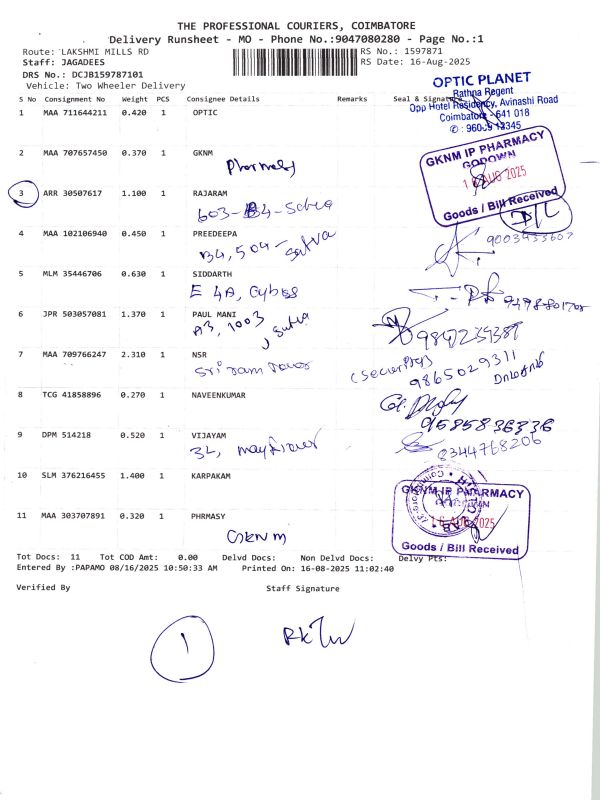 THE PROFESSIONAL COURIERS, COIMBATORE
Delivery Runsheet - MO - Phone No.:9047080280 - Page No.:1
Route: LAKSHMI MILLS RD RS No.: 1597871
Staff: JAGADEES RS Date: 16-Aug-2025
DRS No.: DCJB159787101
Vehicle: Two Wheeler Delivery
S No Consignment No Weight PCS Consignee Details Remarks Seal & Signature
OPTIC PLANET
Rathna Regent
Opp Hotel Residency, Avinashi Road
Coimbatore - 641 018
1 MAA 711644211 0.420 1 OPTIC
2 MAA 707657450 0.370 1 GKNM
Pharmacy
GKNM IP PHARMACY
GODOWN
AUG 2025
Goods / Bill Received
3 ARR 30507617 1.100 1 RAJARAM
603-B4-Satva
4 MAA 102106940 0.450 1 PREEDEEPA
B4, 504-Satva
9003433607
5 MLM 35446706 0.630 1 SIDDARTH
E 4A,
6 JPR 503057081 1.370 1 PAUL MANI
A3, 1003, Satva
7 MAA 709766247 2.310 1 NSR
Sri ram
9865029311
8 TCG 41858896 0.270 1 NAVEENKUMAR
9585836336
9 DPM 514218 0.520 1 VIJAYAM
3L, mayflower
8344768206
10 SLM 376216455 1.400 1 KARPAKAM
GKNM IP PHARMACY
GODOWN
16 AUG 2025
Goods / Bill Received
11 MAA 303707891 0.320 1 PHRMASY
GKNM
Tot Docs: 11 Tot COD Amt: 0.00 Delvd Docs: Non Delvd Docs: Delvy Pts:
Entered By :PAPAMO 08/16/2025 10:50:33 AM Printed On: 16-08-2025 11:02:40
Verified By Staff Signature
1